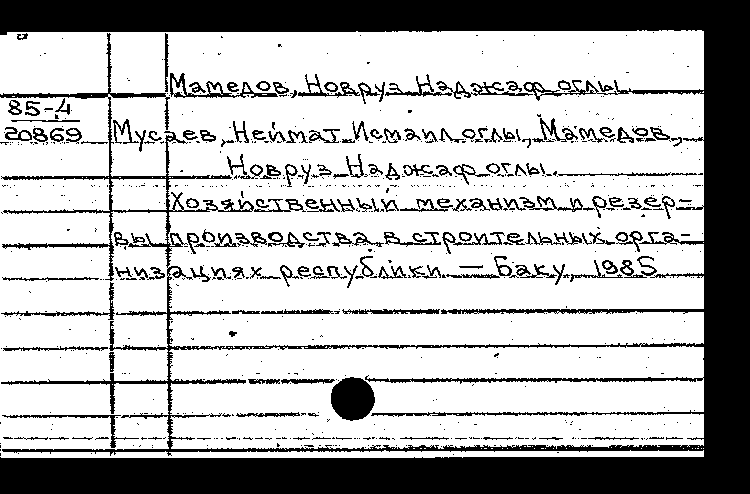 Мамедов, Новруз Наджаф оглы.
85-4
20869
Мусаев, Неймат Исмаил оглы, Мамедов,
Новруз Наджаф оглы.
Хозяйственный механизм и резер-
вы производства в строительных орга-
низациях республики — Баку, 1985